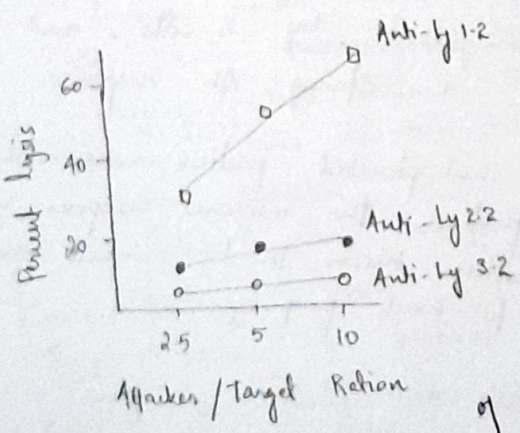 Anti-Ly 1.2
60
Percent lysis
40
20
Anti-Ly 2.2
Anti-Ly 3.2
2.5 5 10
Attacker / Target Ration